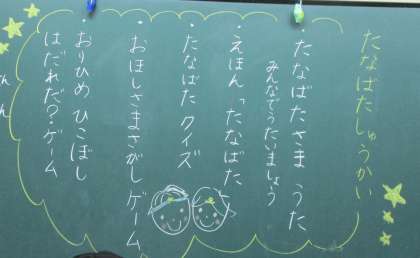 たなばたしゅうかい
・たなばたさま うた
みんなでうたいましょう
・えほん「たなばた
・たなばた クイズ
・おほしさまさがし ゲーム
・おりひめ ひこぼし
はだれだ?ゲーム